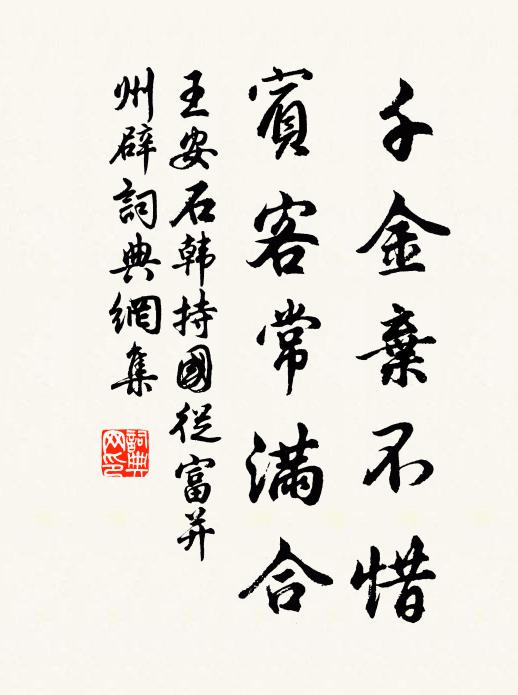 千金棄不惜
賓客常滿合
王安石韩持國從富并
州辟詞典網集
詞典
网印